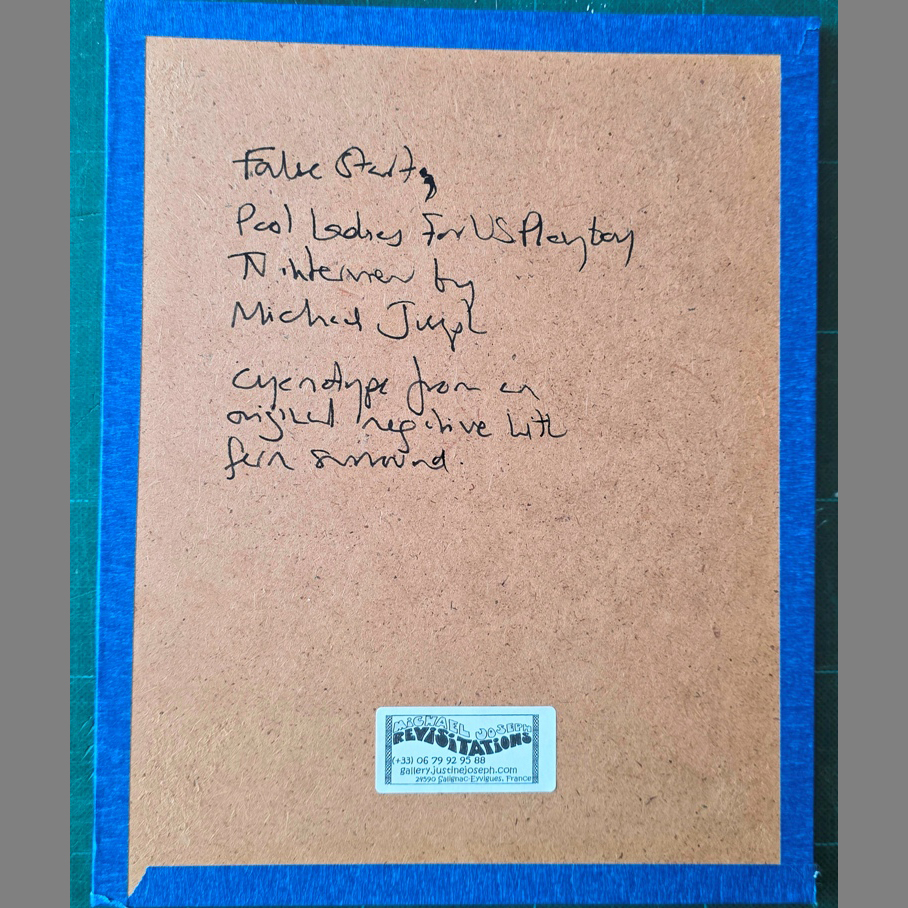 False Start,
Pool Ladies For US Playboy
TV interview by
Michael Joseph
Cyanotype from an
original negative with
fern surround.
MICHAEL JOSEPH
REVISITATIONS
(+33) 06 79 92 95 88
gallery.justinejoseph.com
24590 Salignac-Eyvigues, France